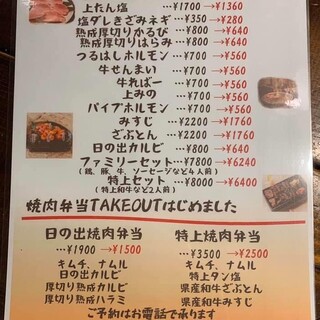 上たん塩 …¥1700→¥1360
塩ダレきざみネギ…¥350→¥280
熟成厚切りかるび …¥800→¥640
熟成厚切りはらみ …¥800→¥640
つるはしホルモン …¥700→¥560
牛せんまい …¥700→¥560
牛ればー …¥700→¥560
上みの …¥700→¥560
パイプホルモン …¥700→¥560
みすじ …¥2200→¥1760
ざぶとん …¥2200→¥1760
日の出カルビ …¥800→¥640
ファミリーセット…¥7800→¥6240
(鶏、豚、牛、ソーセージなど4人前)
特上セット …¥8000→¥6400
(特上和牛など2人前)
焼肉弁当TAKEOUTはじめました
日の出焼肉弁当
…¥1900→¥1500
キムチ、ナムル
日の出カルビ
厚切り熟成カルビ
厚切り熟成ハラミ
特上焼肉弁当
…¥3500→¥2500
キムチ、ナムル
特上タン塩
県産和牛ざぶとん
県産和牛みすじ
ご予約はお電話で承ります